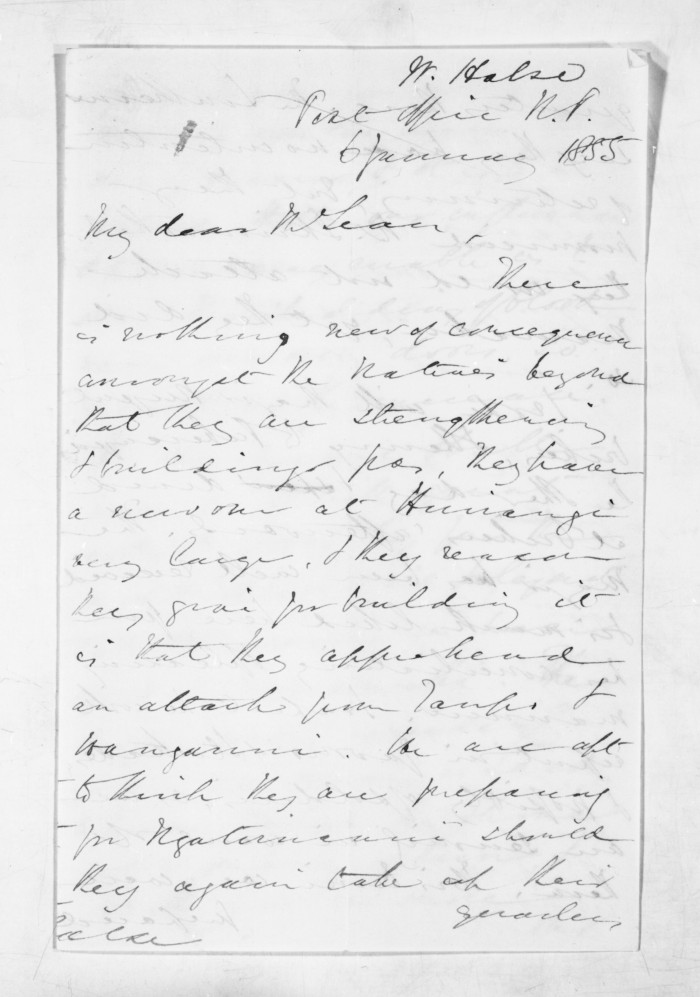 W. Halse
Post Office N.P.
6 January 1855
My dear McLean,
There
is nothing new of consequence
amongst the Natives beyond
that they are strengthening
& building pas, they have
a new one at
very large, & they reason
they give for building it
is that they apprehend
an attack from Taupo &
Wanganui. We are apt
to think they are preparing
for Ngatiruanui should
they again take up their
Halse